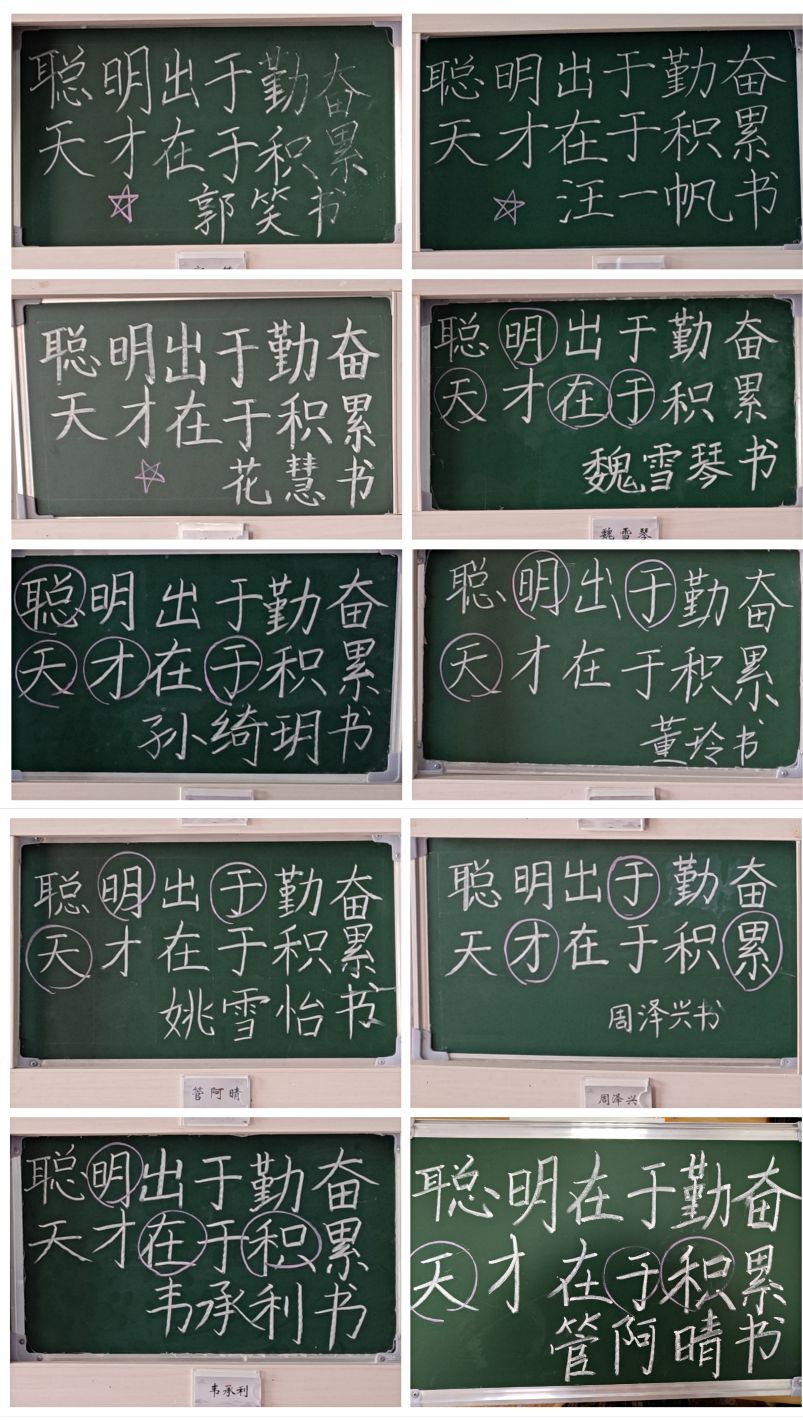 聪明出于勤奋
天才在于积累
郭笑书
聪明出于勤奋
天才在于积累
汪一帆书
聪明出于勤奋
天才在于积累
花慧书
聪明出于勤奋
天才在于积累
魏雪琴书
魏雪琴
聪明出于勤奋
天才在于积累
孙绮玥书
聪明出于勤奋
天才在于积累
董玲书
聪明出于勤奋
天才在于积累
姚雪怡书
管阿晴
聪明出于勤奋
天才在于积累
周泽兴书
周泽兴
聪明出于勤奋
天才在于积累
韦承利书
韦承利
聪明在于勤奋
天才在于积累
管阿晴书